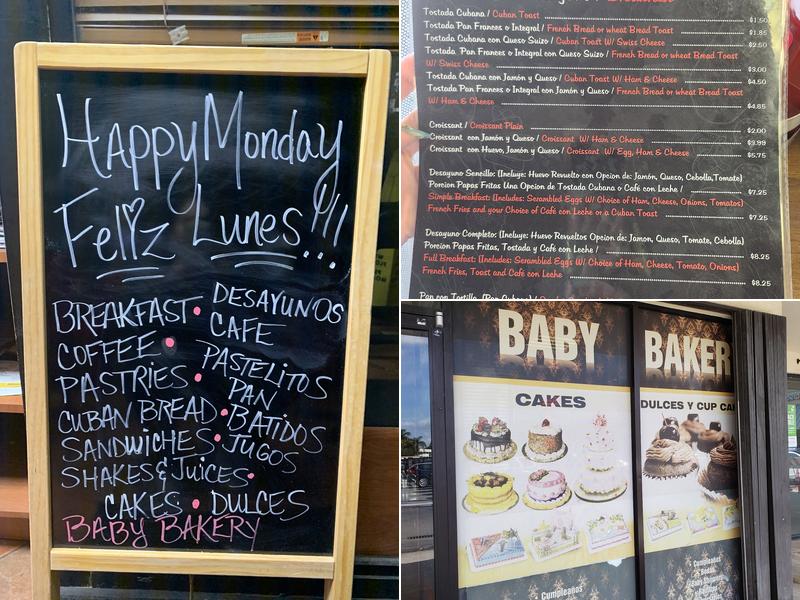 Happy Monday
Feliz Lunes!!!
BREAKFAST • DESAYUNOS
COFFEE • CAFE
PASTRIES • PASTELITOS
CUBAN BREAD • PAN
SANDWICHES • BATIDOS
SHAKES & Juices • JUGOS
CAKES • DULCES
BABY BAKERY
Tostada Cubana / Cuban Toast $1.50
Tostada Pan Frances o Integral / French Bread or wheat Bread Toast $1.85
Tostada Cubana con Queso Suizo / Cuban Toast W/ Swiss Cheese $2.50
Tostada Pan Frances o Integral con Queso Suizo / French Bread or wheat Bread Toast
W/ Swiss Cheese $3.00
Tostada Cubana con Jamón y Queso / Cuban Toast W/ Ham & Cheese $4.50
Tostada Pan Frances o Integral con Jamón y Queso / French Bread or wheat Bread Toast
W/ Ham & Cheese $4.85
Croissant / Croissant Plain $2.00
Croissant con Jamón y Queso / Croissant W/ Ham & Cheese $3.99
Croissant con Huevo, Jamón y Queso / Croissant W/ Egg, Ham & Cheese $5.75
Desayuno Sencillo: (Incluye: Huevo Revuelto con Opcion de: Jamón, Queso, Cebolla, Tomate)
Porcion Papas Fritas Una Opcion de Tostada Cubana o Café con Leche / $7.25
Simple Breakfast: (Includes: Scrambled Eggs W/ Choice of Ham, Cheese, Onions, Tomatos)
French Fries and your Choice of Café con Leche or a Cuban Toast $7.25
Desayuno Completo: (Incluye: Huevo Revueltos Opcion de: Jamon, Queso, Tomate, Cebolla)
Porcion Papas Fritas, Tostada y Cafe con Leche / $8.25
Full Breakfast: (Includes: Scrambled Eggs W/ Choice of Ham, Cheese, Tomato, Onions)
French Fries, Toast and Cafe con Leche $8.25
Pan con Tortilla
BABY BAKER
CAKES
DULCES Y CUP CA
Cumpleaños
Cumpleaños
Bodas
Baby Showers